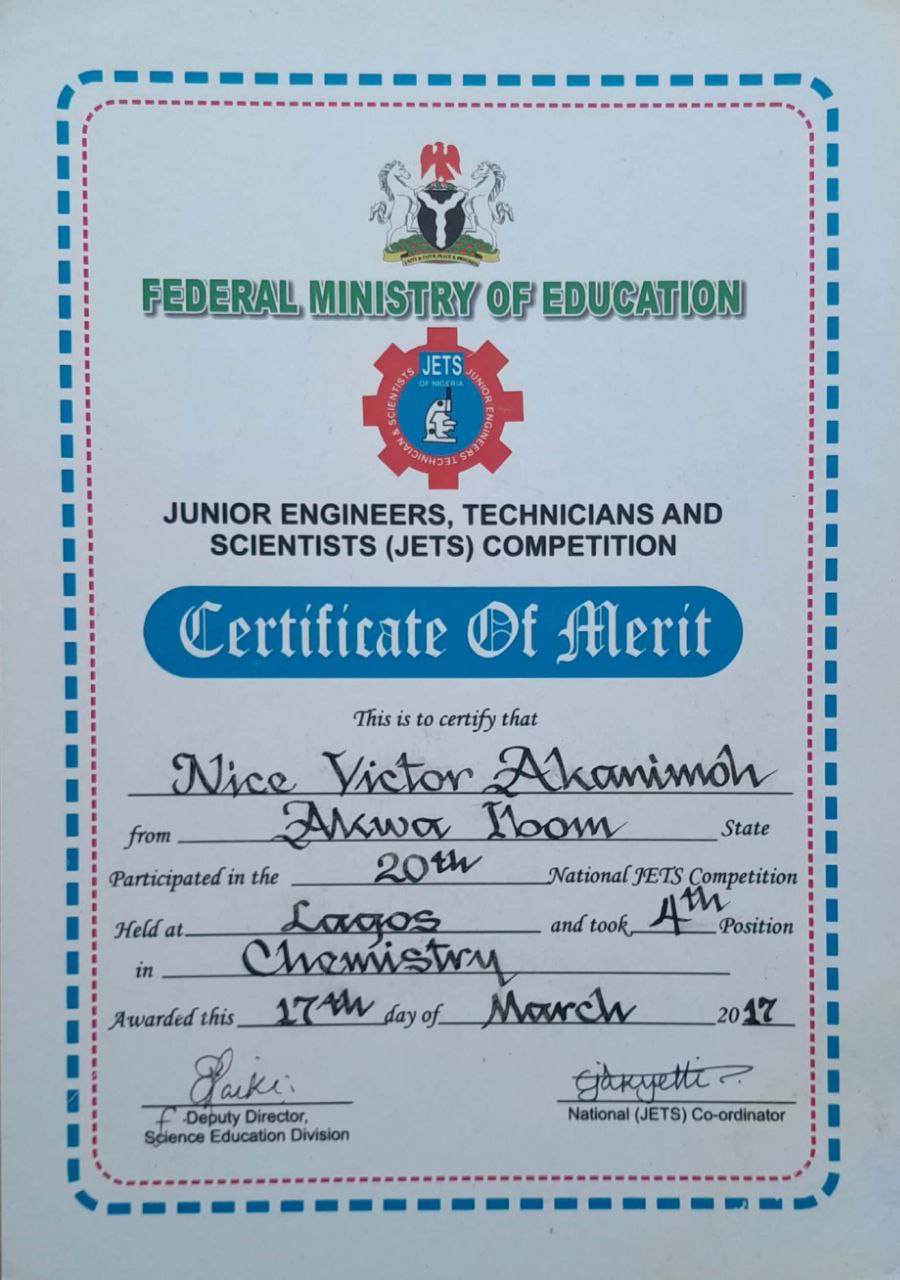 FEDERAL MINISTRY OF EDUCATION
JETS
OF NIGERIA
JUNIOR ENGINEERS TECHNICIAN & SCIENTISTS
JUNIOR ENGINEERS, TECHNICIANS AND
SCIENTISTS (JETS) COMPETITION
Certificate Of Merit
This is to certify that
Nice Victor Akanimoh
from Akwa Ibom State
Participated in the 20th National JETS Competition
Held at Lagos and took 4th Position
in Chemistry
Awarded this 17th day of March 2017
Deputy Director, 
Science Education Division
National (JETS) Co-ordinator